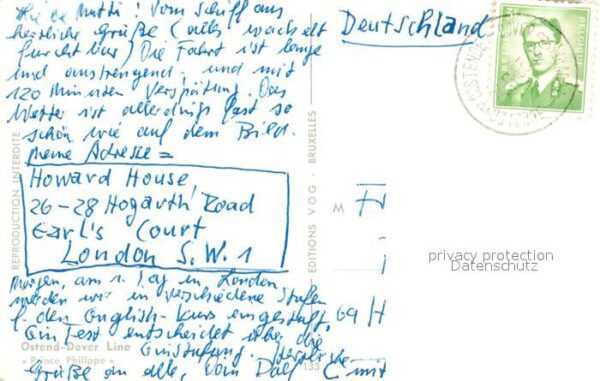 Liebe Mutti! Vom Schiff aus
herzliche Grüße (alles wackelt
furchtbar) Die Fahrt ist lange
und anstrengend und mit
120 Minuten Verspätung. Das
Wetter ist allerdings fast so
schön wie auf dem Bild.
meine Adresse =
Howard House,
26-28 Hogarth Road
Earl's Court
London S.W.1
Morgen, am 1. Tag in London
werden wir in verschiedene Stufen
f. den English-Kurs eingestuft,
Ein Test entscheidet über die
Einstufung. Herzliche
Grüße an alle, von
Deutschland
BELGIQUE
OSTENDE-DOUVRES
M
69 H
REPRODUCTION INTERDITE
EDITIONS VOG - BRUXELLES
133
Ostend-Dover Line
« Prince Philippe »
privacy protection
Datenschutz